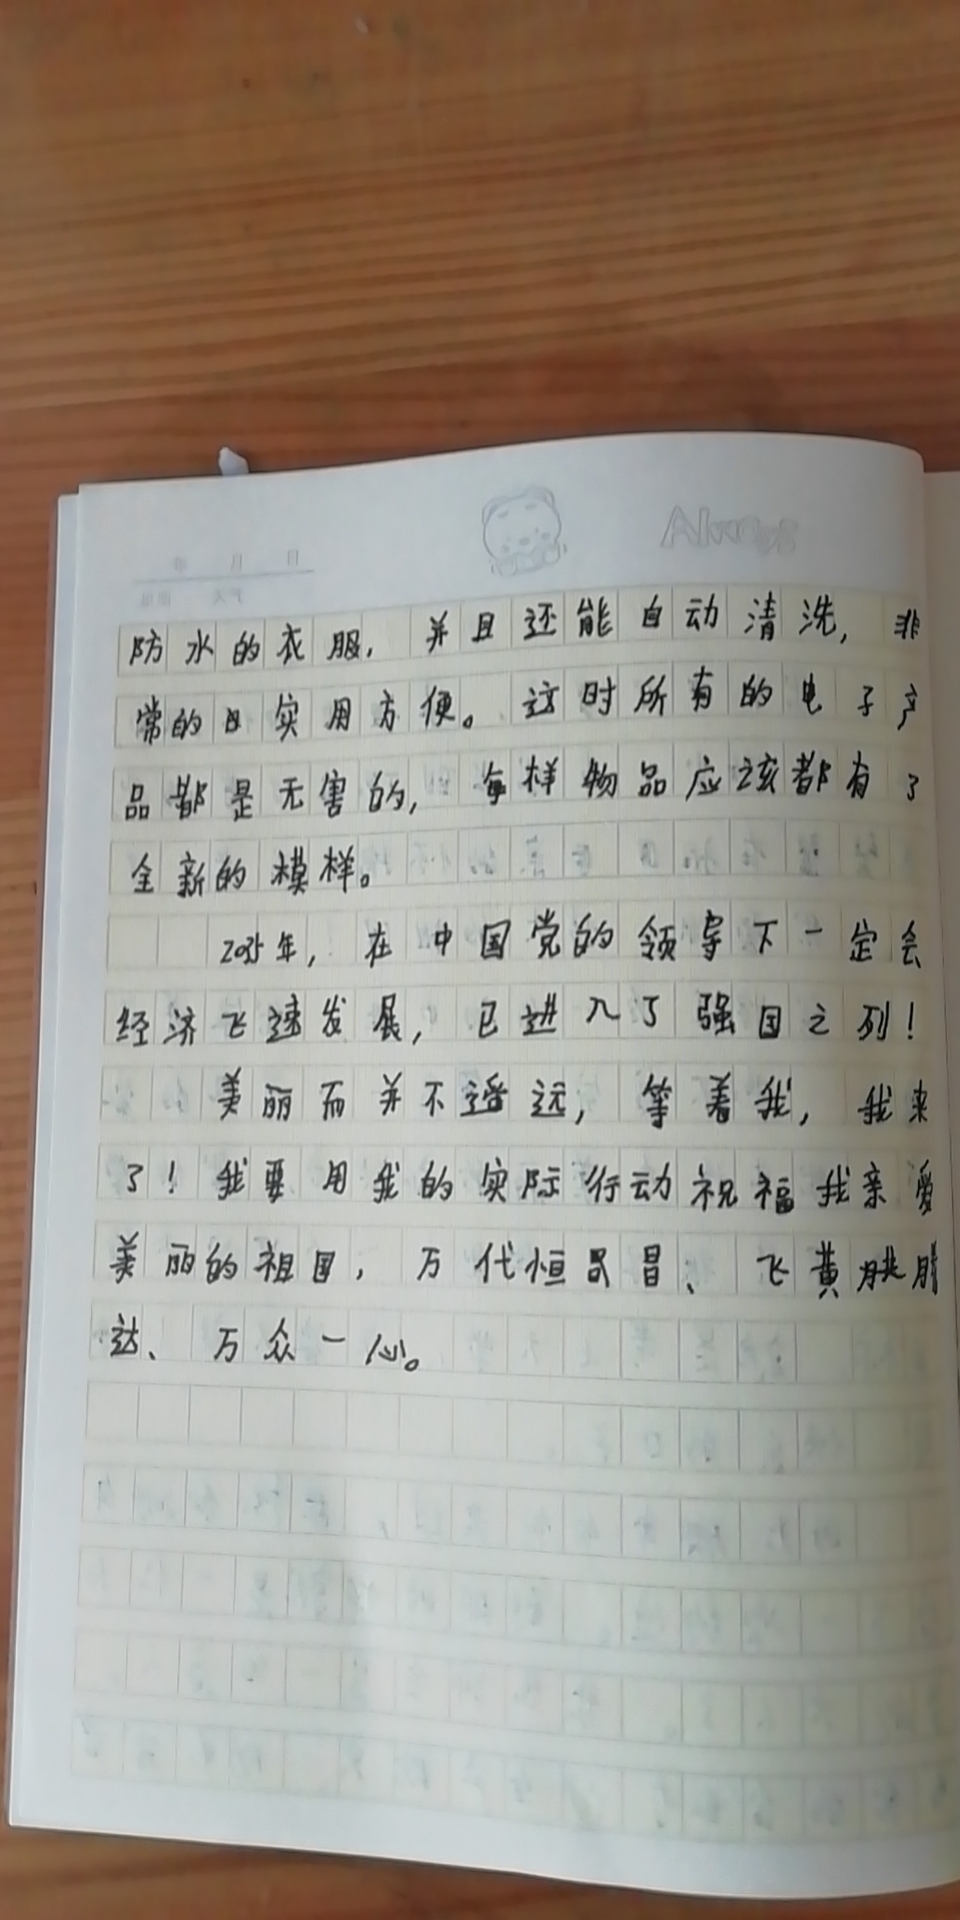 Always
防水的衣服，并且还能自动清洗，非
常的实用方便。这时所有的电子产
品都是无害的，每样物品应该都有了
全新的模样。
2035年，在中国党的领导下一定会
经济飞速发展，已进入了强国之列！
美丽而并不遥远，等着我，我来
了！我要用我的实际行动祝福我亲爱
美丽的祖国，万代恒昌、飞黄腾
达、万众一心。